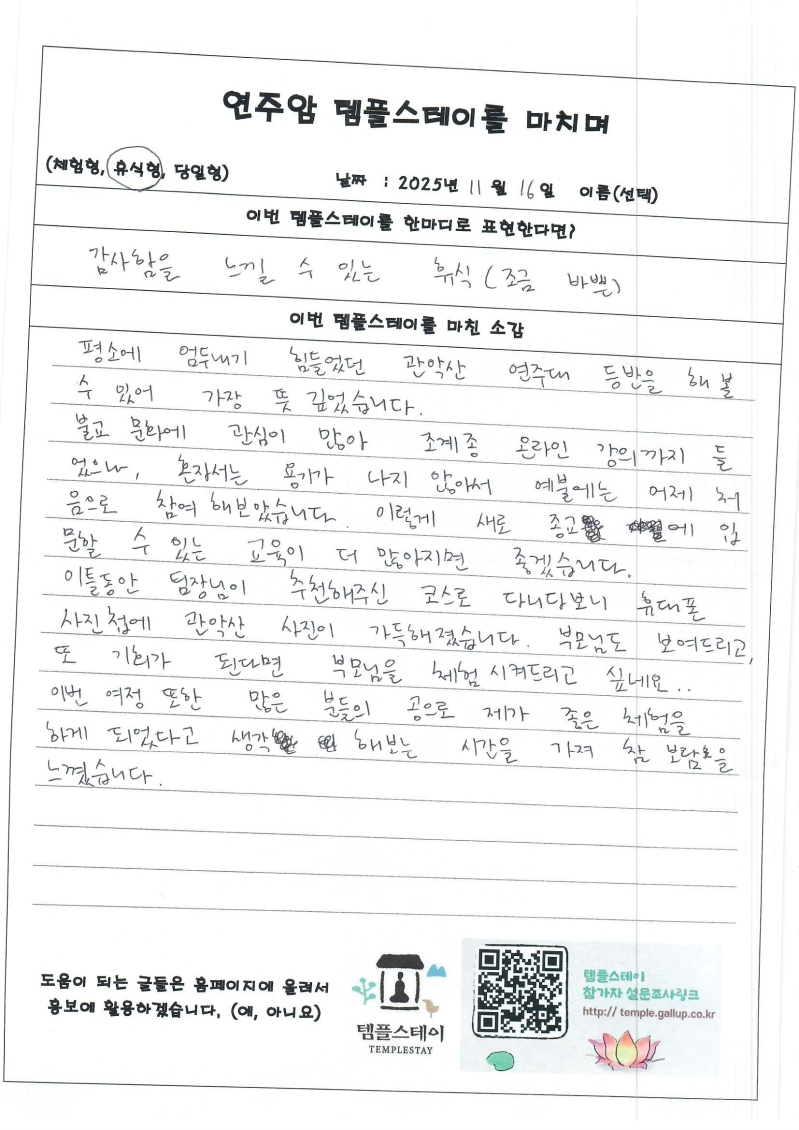 연주암 템플스테이를 마치며
(체험형, 휴식형, 당일형)
날짜 : 2025년 11월 16일 이름(선택)
이번 템플스테이를 한마디로 표현한다면?
감사함을 느끼실 수 있는 휴식 (조금 바쁜)
이번 템플스테이를 마친 소감
평소에 엄두내기 힘들었던 관악산 연주대 등반을 해 볼
수 있어 가장 뜻 깊었습니다.
불교 문화에 관심이 많아 조계종 온라인 강의까지 들
었으나, 혼자서는 용기가 나지 않아서 예불에는 어제 처
음으로 참여 해보았습니다. 이렇게 새로 종교에 입
문할 수 있는 교육이 더 많아지면 좋겠습니다.
이틀동안 팀장님이 추천해주신 코스로 다니다보니 휴대폰
사진첩에 관악산 사진이 가득해졌습니다. 부모님도 보여드리고,
또 기회가 된다면 부모님을 체험 시켜드리고 싶네요..
이번 여정 또한 많은 분들의 공으로 제가 좋은 체험을
하게 되었다고 생각 해보는 시간을 가져 참 보람을
느꼈습니다.
도움이 되는 글들은 홈페이지에 올려서
홍보에 활용하겠습니다. (예, 아니요)
템플스테이
TEMPLESTAY
템플스테이
참가자 설문조사링크
http:// temple.gallup.co.kr